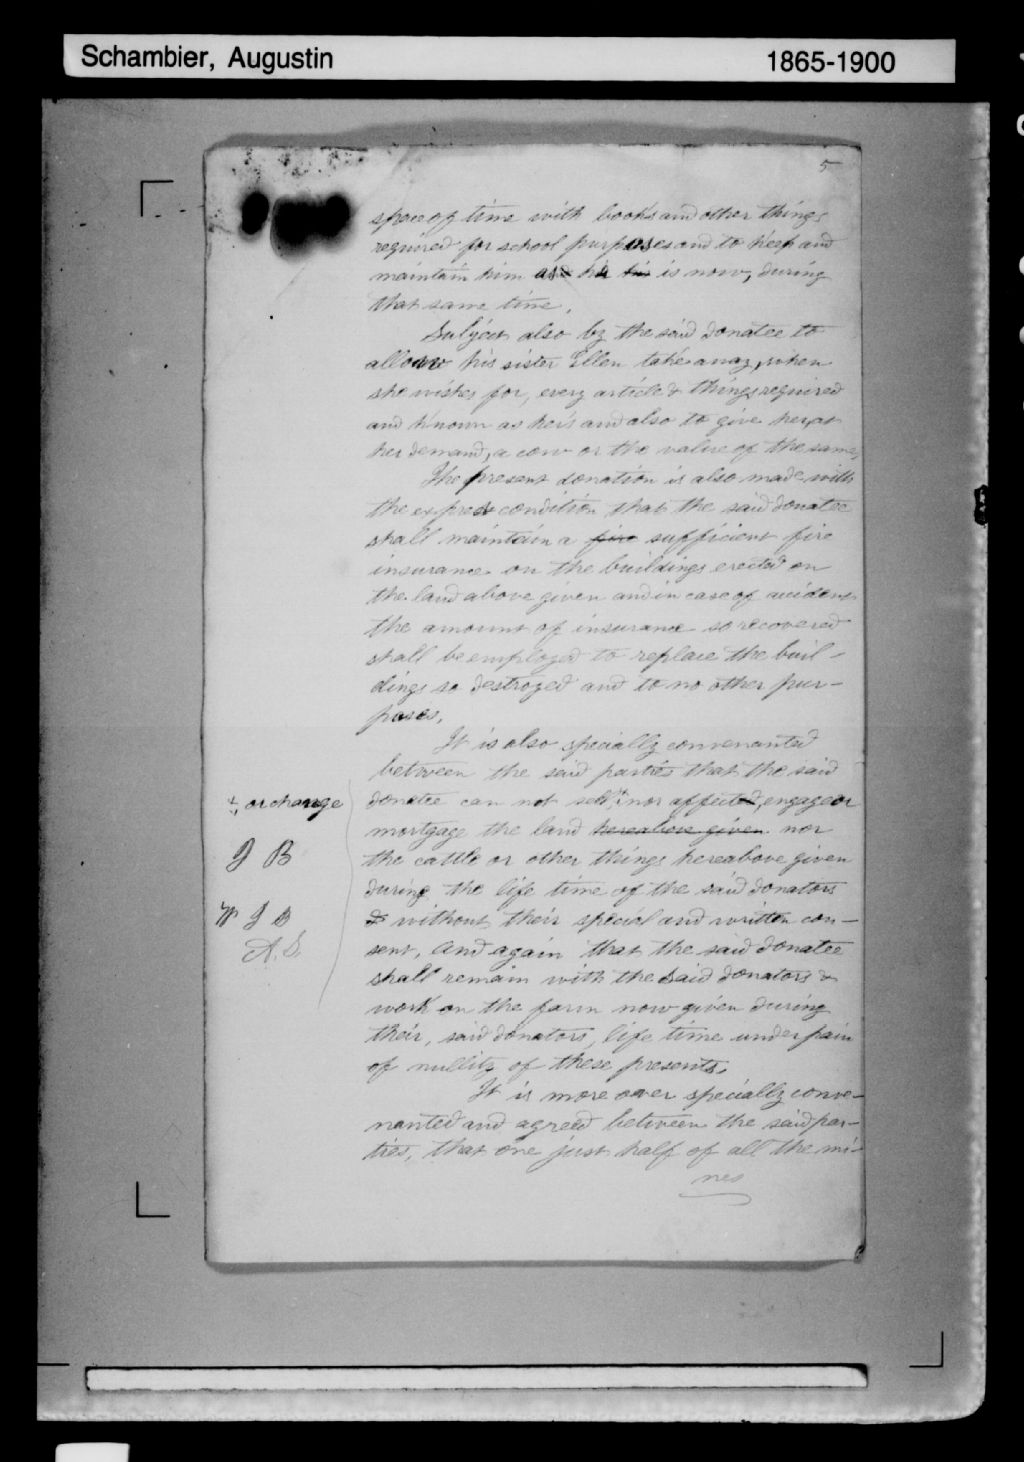 Schambier, Augustin
1865-1900
5
space of time with books and other things
required for school purposes and to keep and
maintain him as he is now, during
that same time.
Subject also by the said donatee to
allow his sister Ellen take away, when
she wishes for, every article & things required
and known as hers and also to give her, at
her demand, a cow or the value of the same,
The present donation is also made with
the express condition that the said donatee
shall maintain a fire sufficient fire
insurance on the buildings erected on
the land above given and in case of accident
the amount of insurance so recovered
shall be employed to replace the buil-
dings so destroyed and to no other pur-
poses.
It is also specially convenanted
between the said parties that the said
+ or change
donatee can not sell + nor affected, engage or
mortgage the land hereabove given nor
J B
the cattle or other things hereabove given
during the life time of the said donators
J B
& without their special and written con-
A. S.
sent, and again that the said donatee
shall remain with the said donators &
work on the farm now given during
their, said donators, life time under pain
of nullity of these presents.
It is more over specially conve-
nanted and agreed between the said par-
ties, that one just half of all the mi-
nes